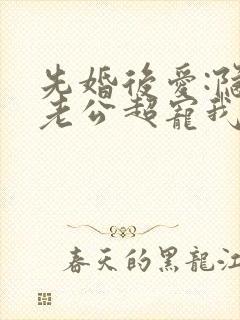 先婚後愛:
老公超寵我
春天的黑龍江